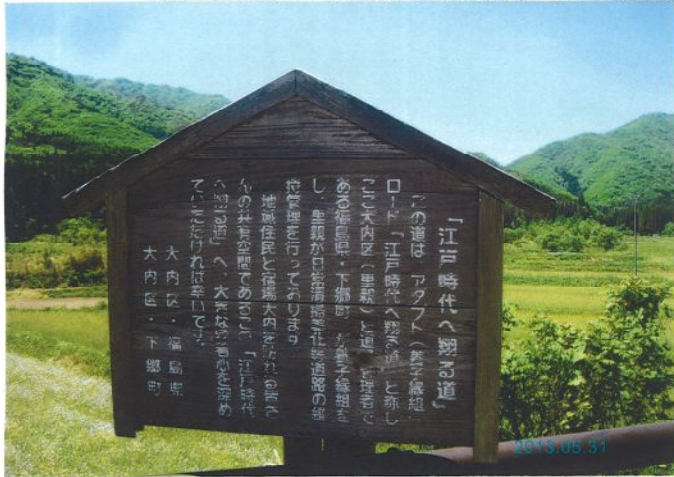 「江戸時代へ翔る道」
この道は アダプト(養子縁組)
ロード「江戸時代へ翔る道」と称し
ここ大内区(里親)と道路管理者で
ある福島県・下郷町が養子縁組を
し 里親が日常清掃美化等道路の維
持管理を行っております
地域住民と宿場大内を訪れる皆さ
んの共有空間である「江戸時代
へ翔る道」へ、大きな関心を深め
ていただければ幸いです。
大内区・福島県
大内区・下郷町
2013.05.31